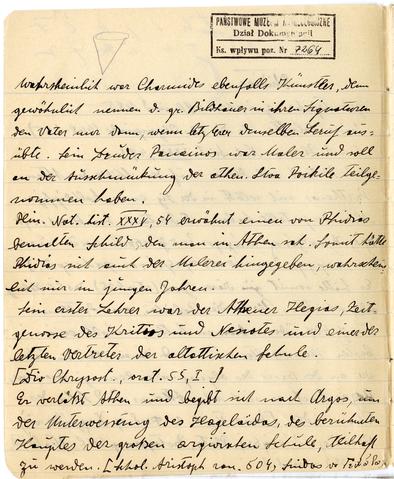 PAŃSTWOWE MUZEUM ARCHEOLOGICZNE
Dział Dokumentacji
Ks. wpływu poz. Nr 7264
Wahrscheinlich war Charmides ebenfalls Künstler, denn
gewöhnlich nennen d. gr. Bildhauer in ihren Signaturen
den Vater nur dann, wenn letzterer denselben Beruf aus-
übte. Sein Bruder Panainos war Maler und soll
an der Ausschmückung der athen. Stoa Poikile teilge-
nommen haben.
Plin. Nat. hist. XXXV, 54 erwähnt einen von Phidias
bemalten Schild, den man in Athen sah. Somit hätte
Phidias sich auch der Malerei hingegeben, wahrschein-
lich nur in jungen Jahren.
Sein erster Lehrer war der Athener Hegias, Zeit-
genosse des Kritios und Nesiotes und einer der
letzten Vertreter der altattischen Schule.
[Dio Chrysost., orat. 55, I.]
Er verläßt Athen und begibt sich nach Argos, um
der Unterweisung des Hageladas, des berühmten
Hauptes der großen argivischen Schule, teilhaft
zu werden. [Schol. Aristoph ran. 504, Suidas v